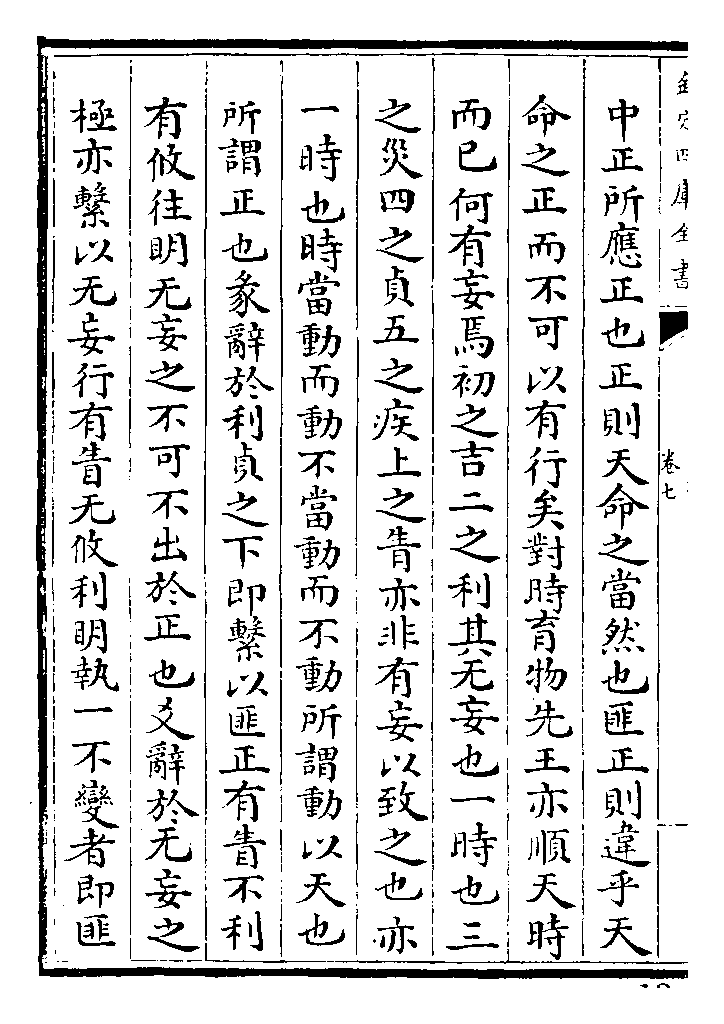 欽定四庫全書
卷七
中正所應正也正則天命之當然也匪正則違乎天
命之正而不可以有行矣對時育物先王亦順天時
而已何有妄焉初之吉二之利其无妄也一時也三
之災四之貞五之疾上之眚亦非有妄以致之也亦
一時也時當動而動不當動而不動所謂動以天也
所謂正也彖辭於利貞之下即繫以匪正有眚不利
有攸往明无妄之不可不出於正也爻辭於无妄之
極亦繫以无妄行有眚无攸利明執一不變者即匪